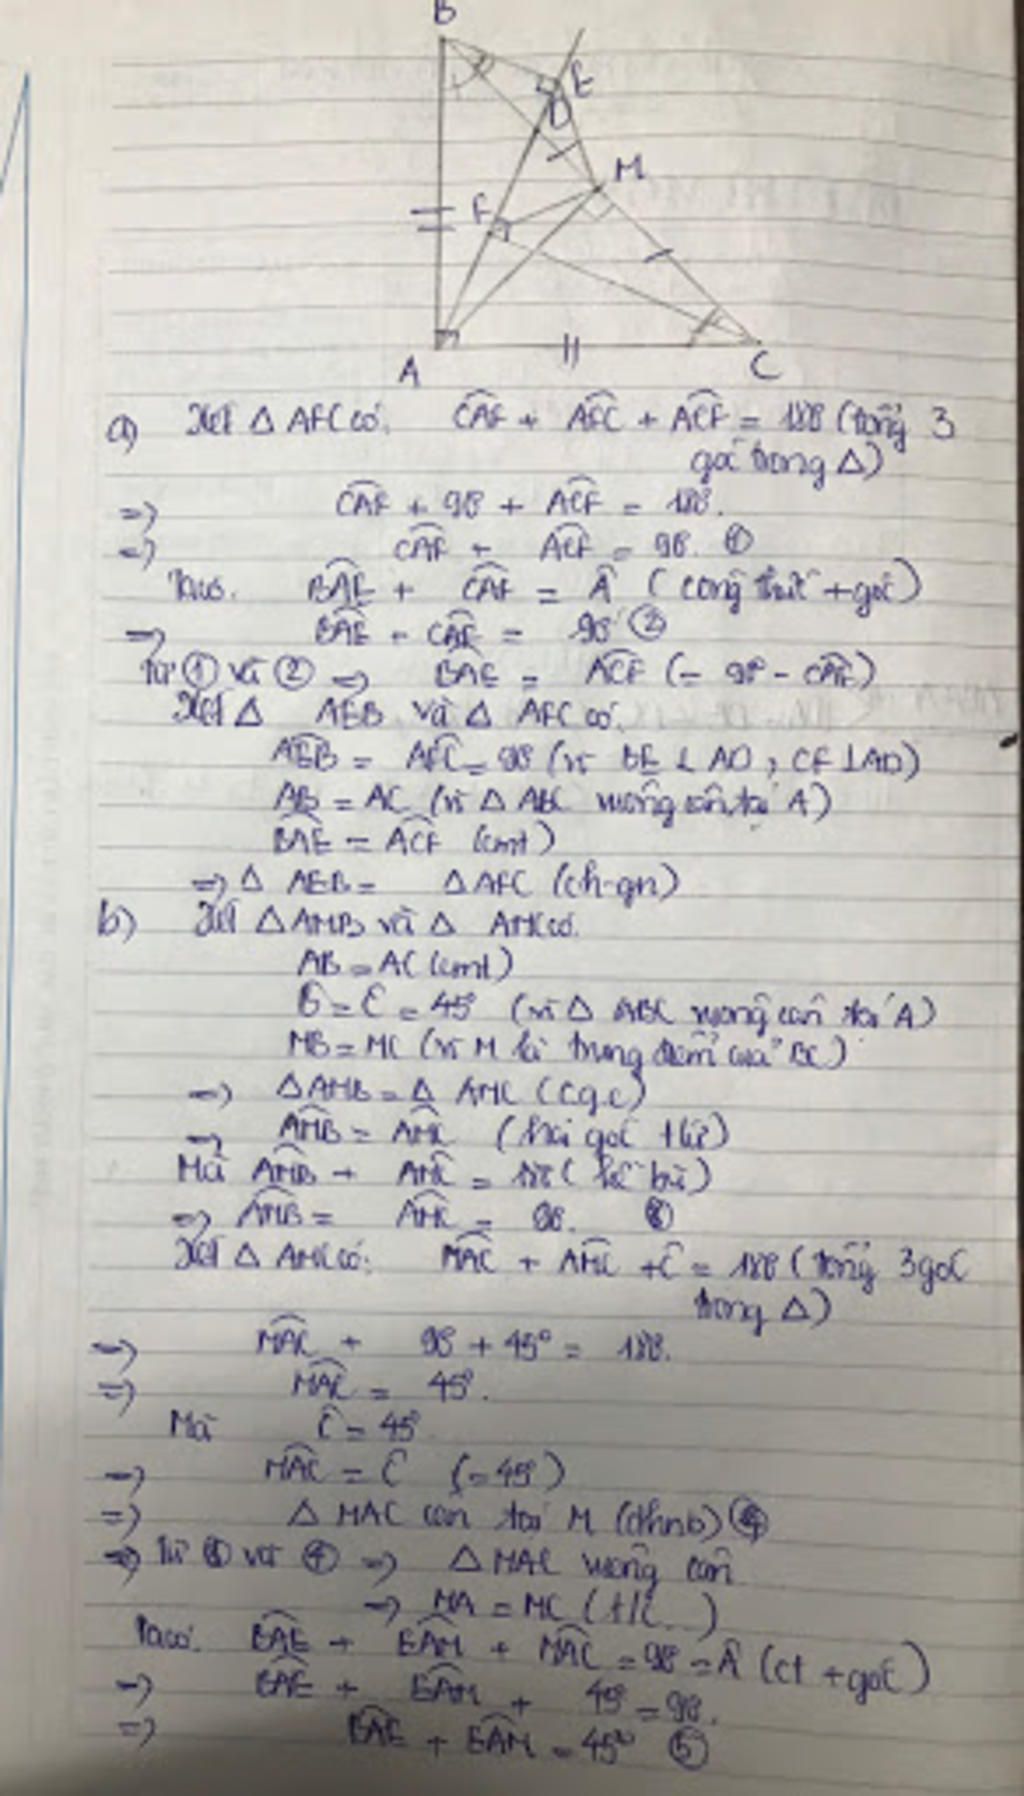 B
E
D
M
F
A
C
a) Xét △ AFC có: CAF + AFC + ACF = 180° (tổng 3
góc trong △)
=> CAF + 90° + ACF = 180°.
=> CAF + ACF = 90°. ①
Ta có. BAE + CAF = Â (công thức + góc)
=> BAE + CAE = 90° ②
Từ ① và ② => BAE = ACF (= 90° - CAE)
Xét △ AEB và △ AFC có.
AEB = AFC = 90° (vì BE ⊥ AD ; CF ⊥ AD)
AB = AC (vì △ ABC vuông cân tại A)
BAE = ACF (cmt)
=> △ AEB = △ AFC (ch-gn)
b) Xét △ AMB và △ AMC có.
AB = AC (cmt)
B̂ = Ĉ = 45° (vì △ ABC vuông cân tại A)
MB = MC (vì M là trung điểm của BC)
=> △ AMB = △ AMC (c.g.c)
=> AMB = AMC (hai góc t/ứ)
Mà AMB + AMC = 180° (kề bù)
=> AMB = AMC = 90°. ③
Xét △ AMC có: MAC + AMC + Ĉ = 180° (tổng 3 góc
trong △)
=> MAC + 90° + 45° = 180°.
=> MAC = 45°.
Mà Ĉ = 45°
=> MAC = Ĉ (= 45°)
=> △ MAC cân tại M (dhnb) ④
=> Từ ③ và ④ => △ MAC vuông cân
=> MA = MC (t/c ...)
Ta có. BAE + EAM + MAC = 90° = Â (ct + góc)
=> BAE + EAM + 45° = 90°.
=> BAE + EAM = 45° ⑤